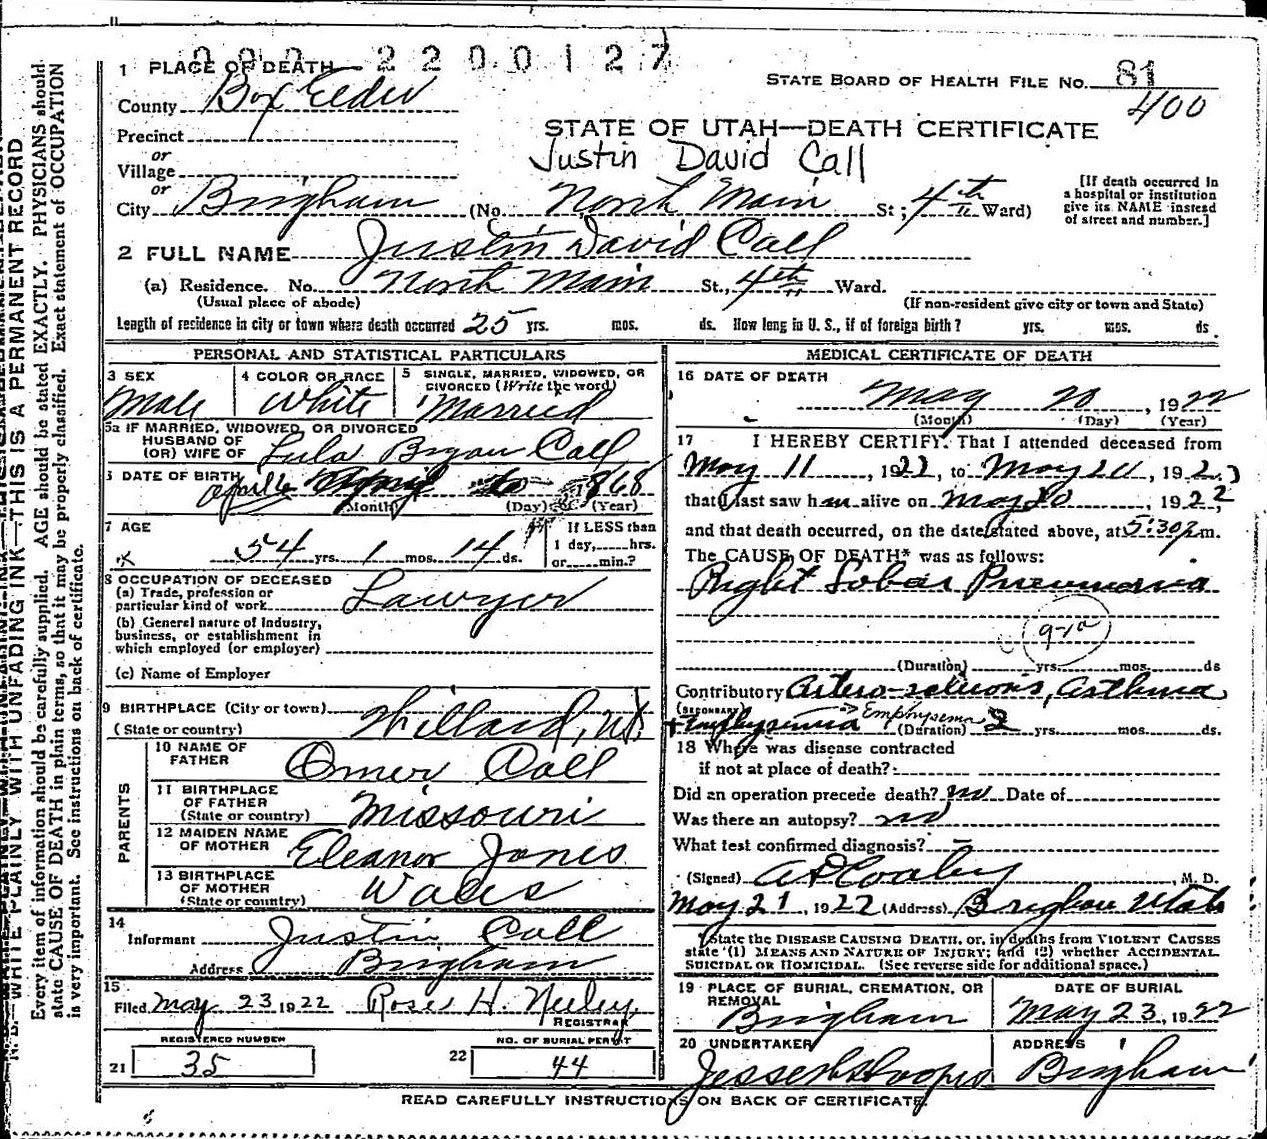 2200127
1 PLACE OF DEATH
STATE BOARD OF HEALTH FILE NO. 81
County Box Elder
400
Precinct
STATE OF UTAH—DEATH CERTIFICATE
or
Justin David Call
Village
or
City Brigham (No. North Main St; 4th Ward)
[If death occurred in
a hospital or institution
give its NAME instead
of street and number.]
2 FULL NAME Justin David Call
(a) Residence. No. North Main St., 4th Ward.
(Usual place of abode) (If non-resident give city or town and State)
Length of residence in city or town where death occurred 25 yrs. mos. ds. How long in U. S., if of foreign birth? yrs. mos. ds.
PERSONAL AND STATISTICAL PARTICULARS
3 SEX
Male
4 COLOR OR RACE
White
5 SINGLE, MARRIED, WIDOWED, OR
DIVORCED (Write the word)
Married
5a IF MARRIED, WIDOWED, OR DIVORCED
HUSBAND OF
(OR) WIFE OF Lula Bryan Call
6 DATE OF BIRTH April 6 1868
(Month) (Day) (Year)
7 AGE
54 yrs. 1 mos. 14 ds.
If LESS than
1 day, hrs.
or min.?
8 OCCUPATION OF DECEASED
(a) Trade, profession or
particular kind of work Lawyer
(b) General nature of industry,
business, or establishment in
which employed (or employer)
(c) Name of Employer
9 BIRTHPLACE (City or town)
(State or country) Willard, Ut.
PARENTS
10 NAME OF
FATHER Omer Call
11 BIRTHPLACE
OF FATHER
(State or country) Missouri
12 MAIDEN NAME
OF MOTHER Eleanor Jones
13 BIRTHPLACE
OF MOTHER
(State or country) Wales
14
Informant Justin Call
Address Brigham
15
Filed May 23 1922 Rose H. Neeley,
REGISTRAR
REGISTERED NUMBER
21 35
NO. OF BURIAL PERMIT
22 44
MEDICAL CERTIFICATE OF DEATH
16 DATE OF DEATH
May 20, 1922
(Month) (Day) (Year)
17 I HEREBY CERTIFY. That I attended deceased from
May 11, 1922, to May 20, 192
that I last saw him alive on May 20, 1922
and that death occurred, on the date stated above, at 5:30 p.m.
The CAUSE OF DEATH* was as follows:
Right Lobar Pneumonia
(Duration) yrs. mos. ds
Contributory Arterio-sclerosis, Asthma
(SECONDARY)
+ Emphysema Emphysema (Duration) 2 yrs. mos. ds.
18 Where was disease contracted
if not at place of death?
Did an operation precede death? no Date of
Was there an autopsy? no
What test confirmed diagnosis? —
(Signed) , M. D.
May 21, 1922 (Address) Brigham Utah
*State the DISEASE CAUSING DEATH, or, in deaths from VIOLENT CAUSES
state (1) MEANS AND NATURE OF INJURY; and (2) whether ACCIDENTAL
SUICIDAL OR HOMICIDAL. (See reverse side for additional space.)
19 PLACE OF BURIAL, CREMATION, OR
REMOVAL
Brigham
DATE OF BURIAL
May 23, 1922
20 UNDERTAKER
ADDRESS
Brigham
READ CAREFULLY INSTRUCTIONS ON BACK OF CERTIFICATE.
N. B.—WRITE PLAINLY WITH UNFADING INK—THIS IS A PERMANENT RECORD
Every item of information should be carefully supplied. AGE should be stated EXACTLY. PHYSICIANS should
state CAUSE OF DEATH in plain terms, so that it may be properly classified. Exact statement of OCCUPATION
is very important. See instructions on back of certificate.